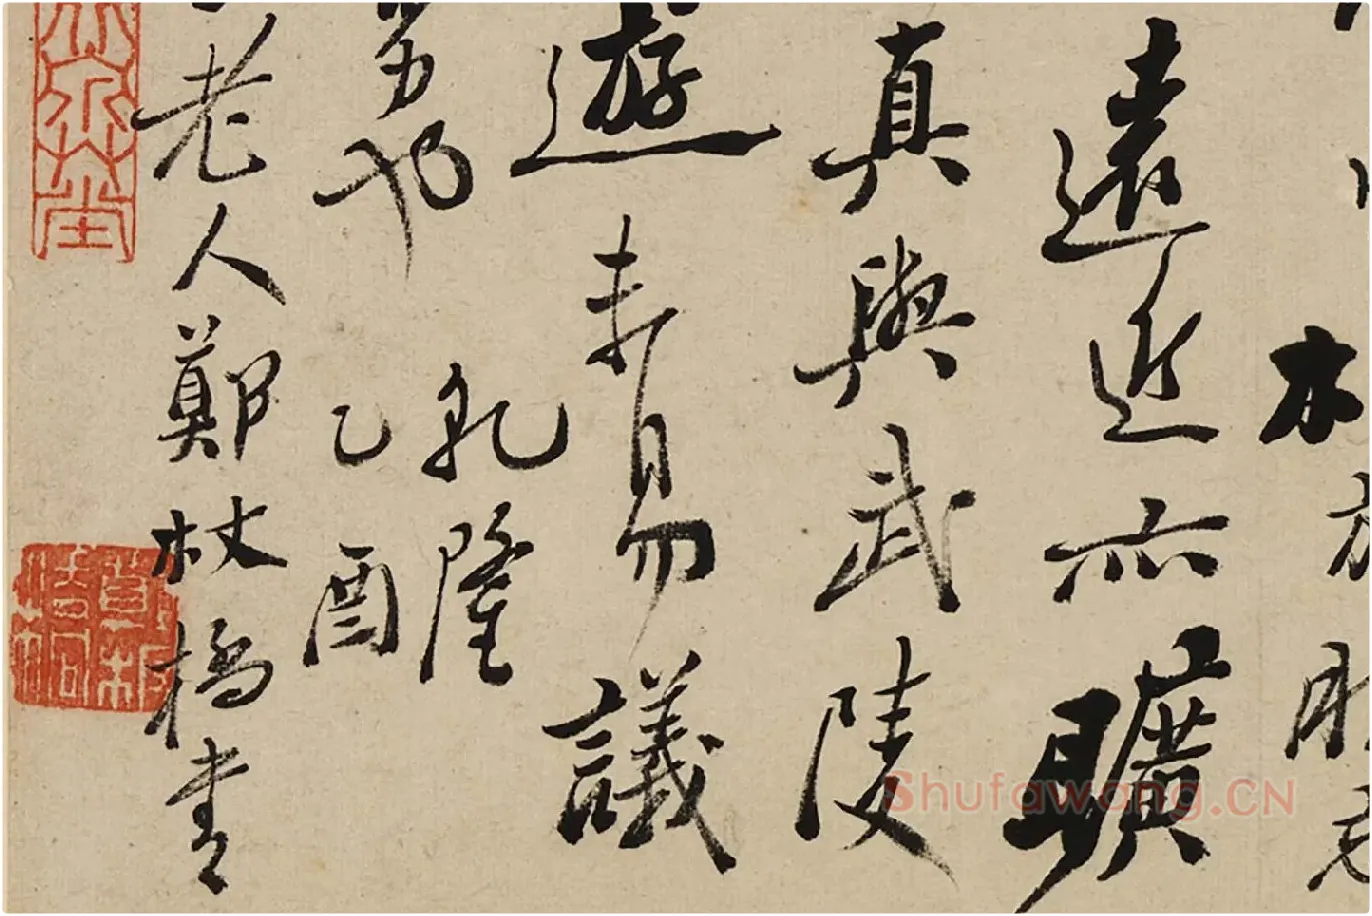 方
遠近亦曠
真與武陵
遊未易議
乾隆
也乙酉
老人鄭板橋書
Shufawang.CN